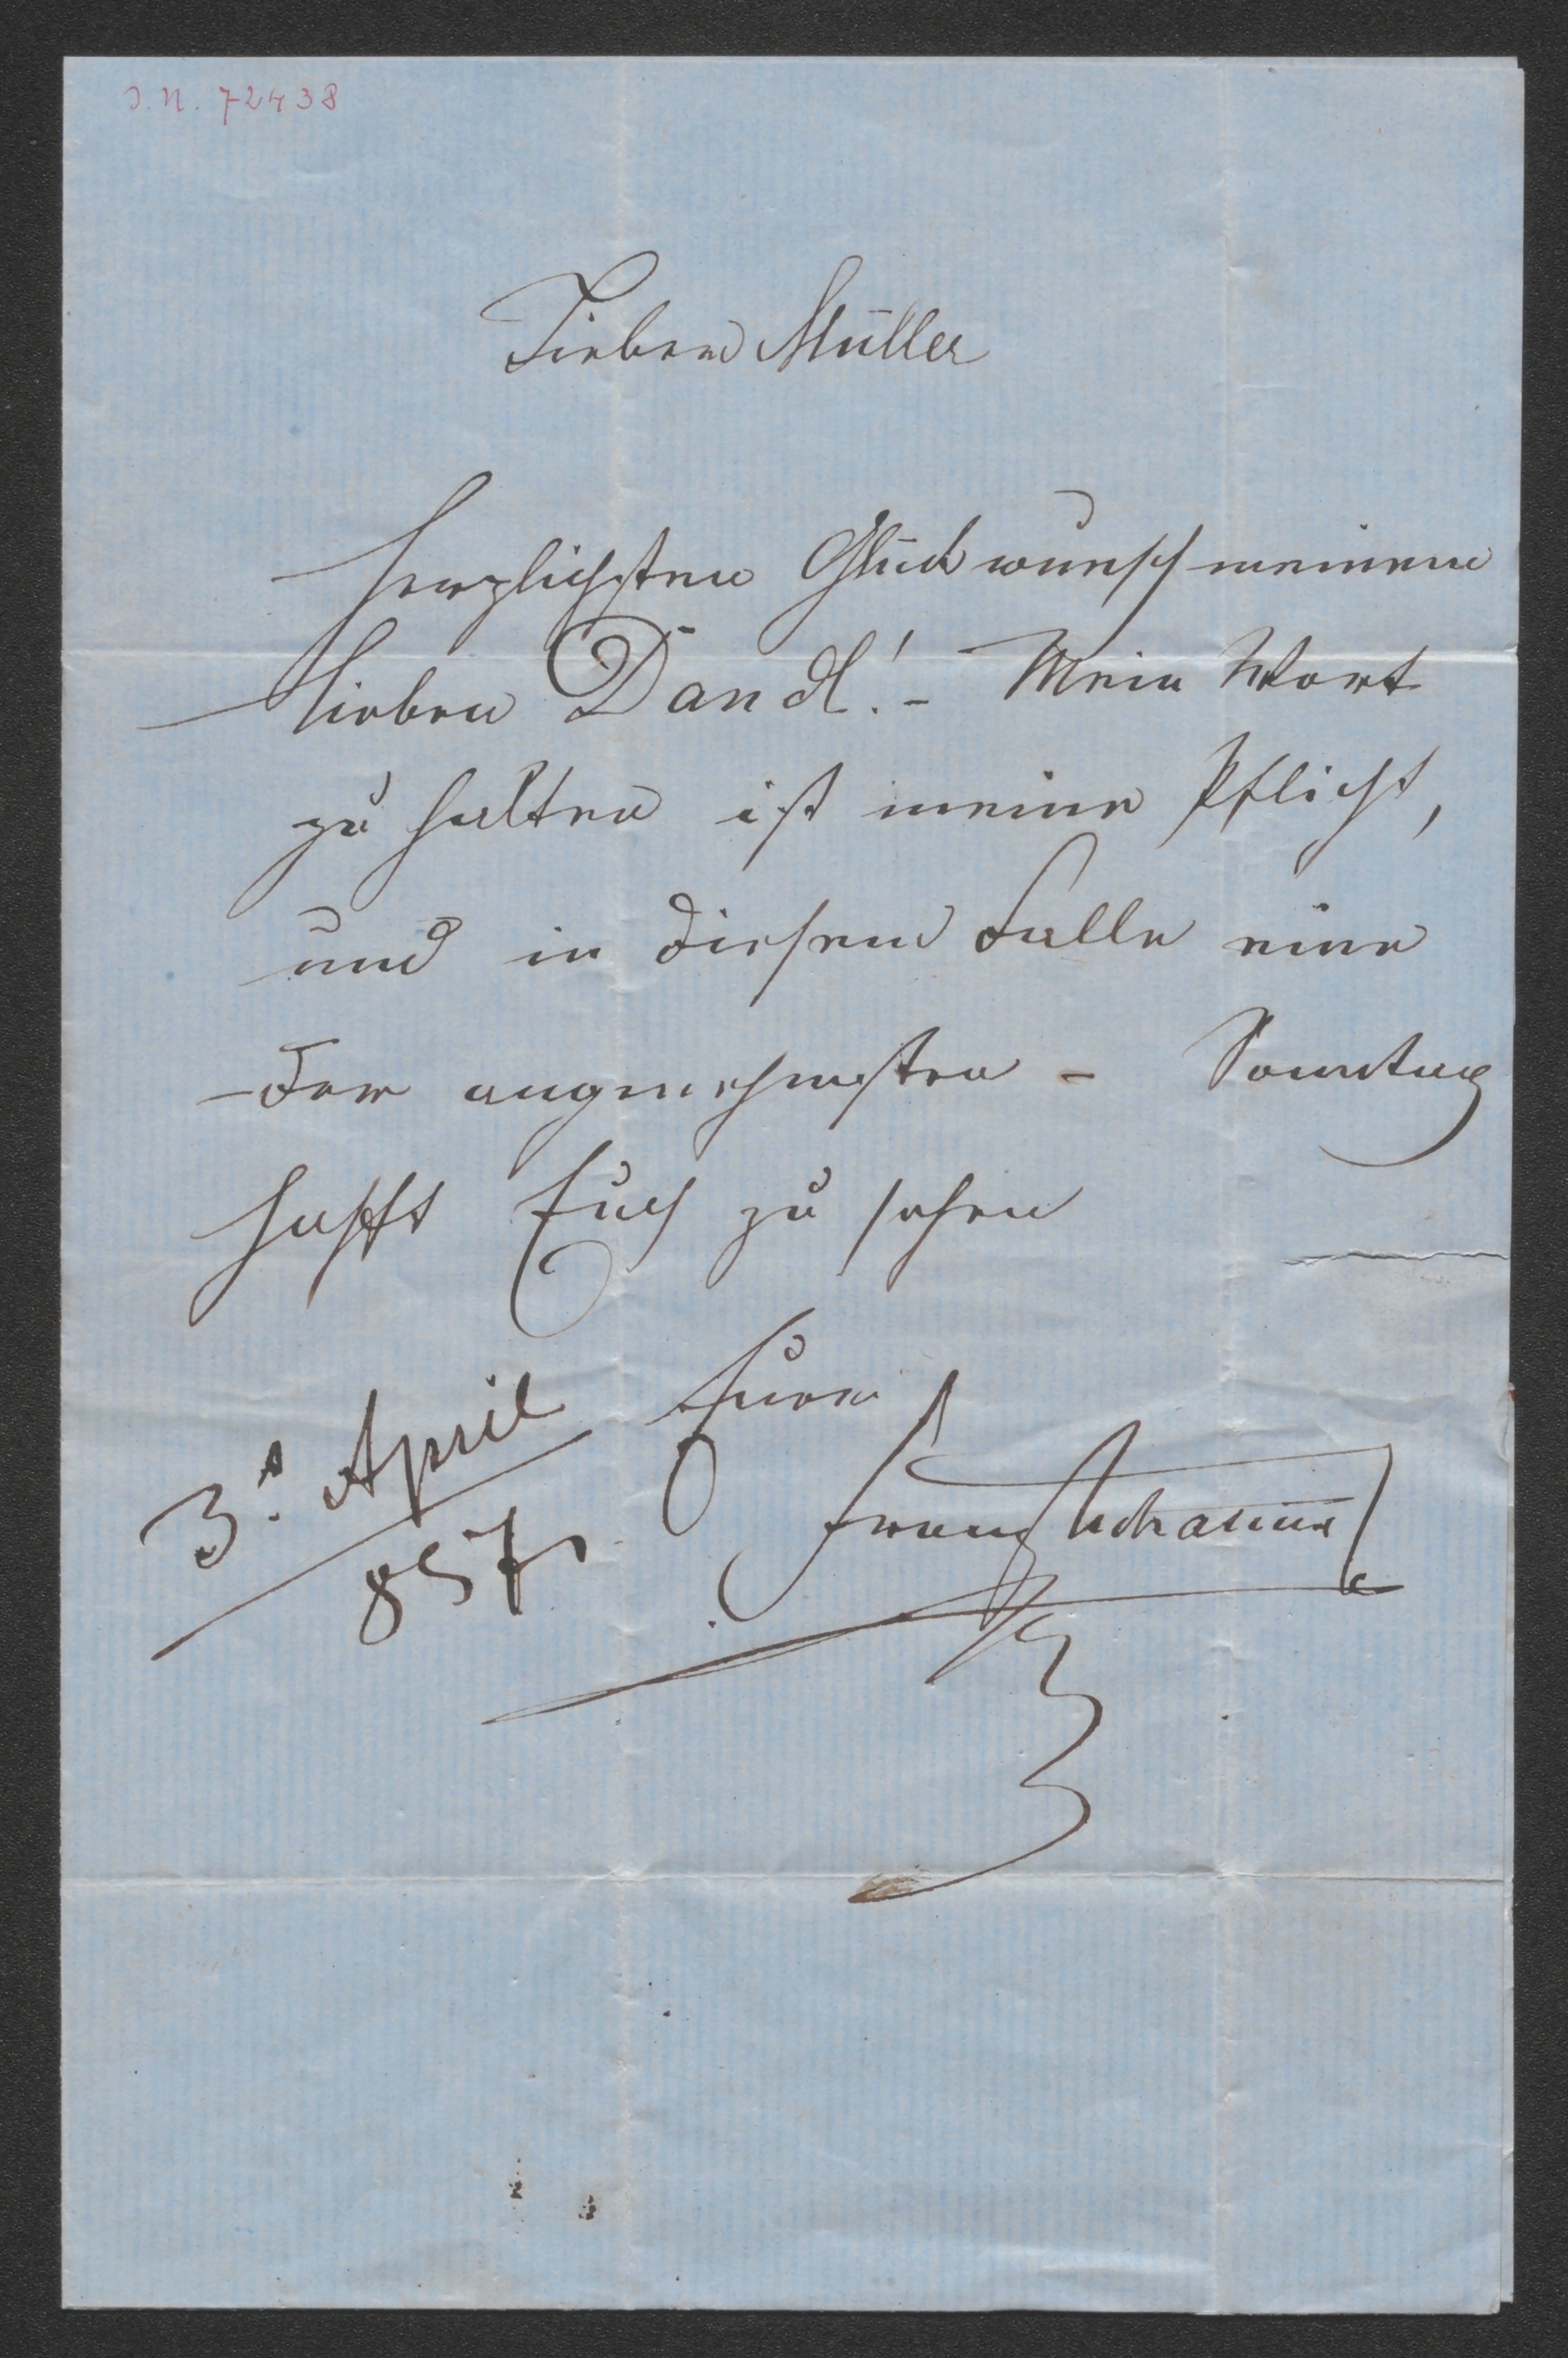 I.N. 72438
Lieber Müller
Herzlichsten Glückwunsch meinem
lieben Dandl! - Mein Wort
zu halten ist meine Pflicht,
und in diesem Falle eine
der angenehmsten - Sonntag
hofft Euch zu sehen
Euer
3. April
857
Franz